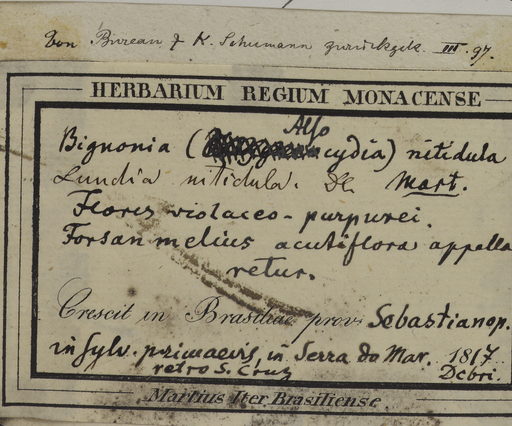 Von Bureau & K. Schumann zurückgek. III. 97.
HERBARIUM REGIUM MONACENSE
Also
Bignonia ( cydia) nitidula
Lundia nitidula. DC Mart.
Flores violaceo-purpurei.
Forsan melius acutiflora appella
retur.
Crescit in Brasiliae prov. Sebastianop.
in sylv. primaevis, in Serra do Mar. 1817
retro S. Cruz Debri.
Martius Iter Brasiliense